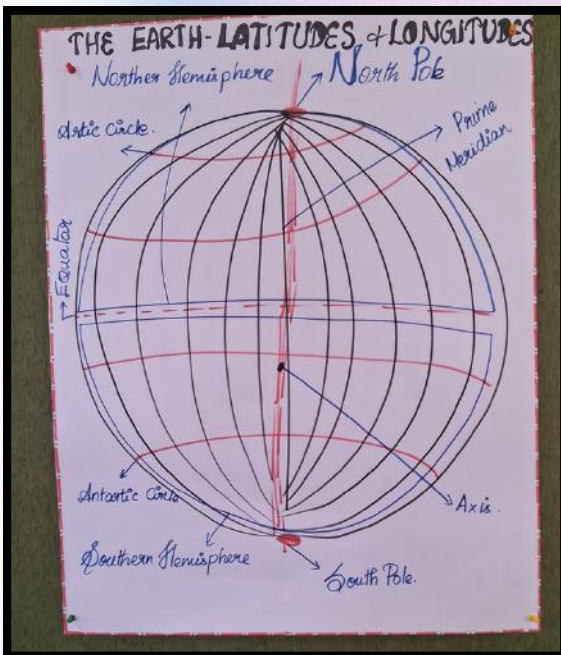 THE EARTH-LATITUDES & LONGITUDES
Norther Hemisphere
North Pole
Artic Circle.
Prime
Meridian
Equator
Antartic Circle
Axis.
Southern Hemisphere
South Pole.